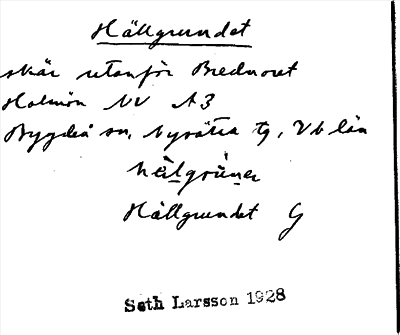 Hällgrundet
skär utanför Bredmoret
Holmön NV A3
Bygdeå sn, Nysätra tg, Vb län
Hällgrundet G
Seth Larsson 1928